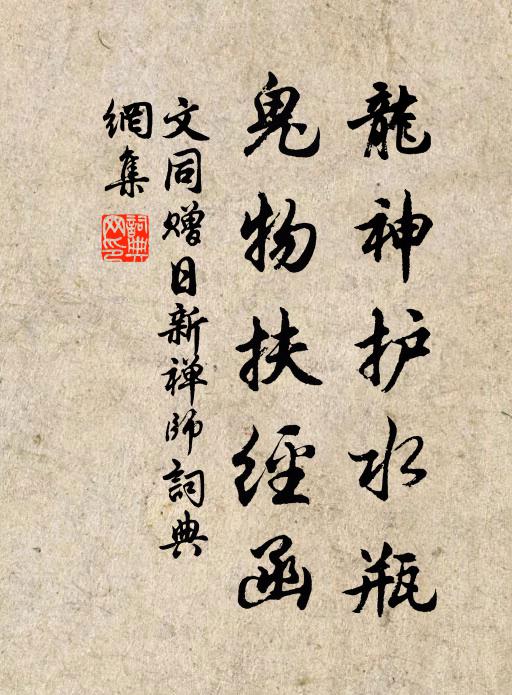 龍神护水瓶
鬼物扶經函
文同赠日新禅師詞典
網集
詞典網印